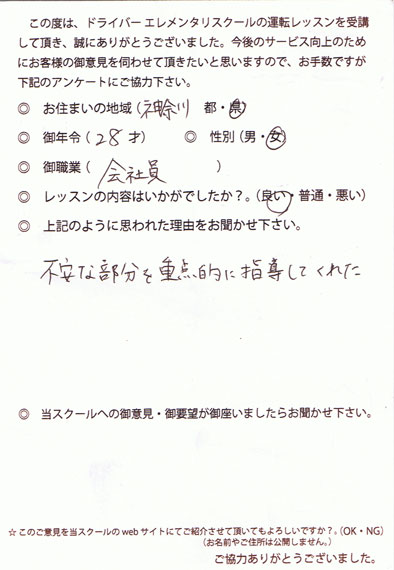 この度は、ドライバーエレメンタリスクールの運転レッスンを受講
して頂き、誠にありがとうございました。今後のサービス向上のため
にお客様の御意見を伺わせて頂きたいと思いますので、お手数ですが
下記のアンケートにご協力下さい。
◎ お住まいの地域（神奈川 都・県）
◎ 御年令（28才） ◎ 性別（男・女）
◎ 御職業（会社員）
◎ レッスンの内容はいかがでしたか？。（良い・普通・悪い）
◎ 上記のように思われた理由をお聞かせ下さい。
不安な部分を重点的に指導してくれた
◎ 当スクールへの御意見・御要望が御座いましたらお聞かせ下さい。
☆このご意見を当スクールのwebサイトにてご紹介させて頂いてもよろしいですか？。（OK・NG）
（お名前やご住所は公開しません。）
ご協力ありがとうございました。